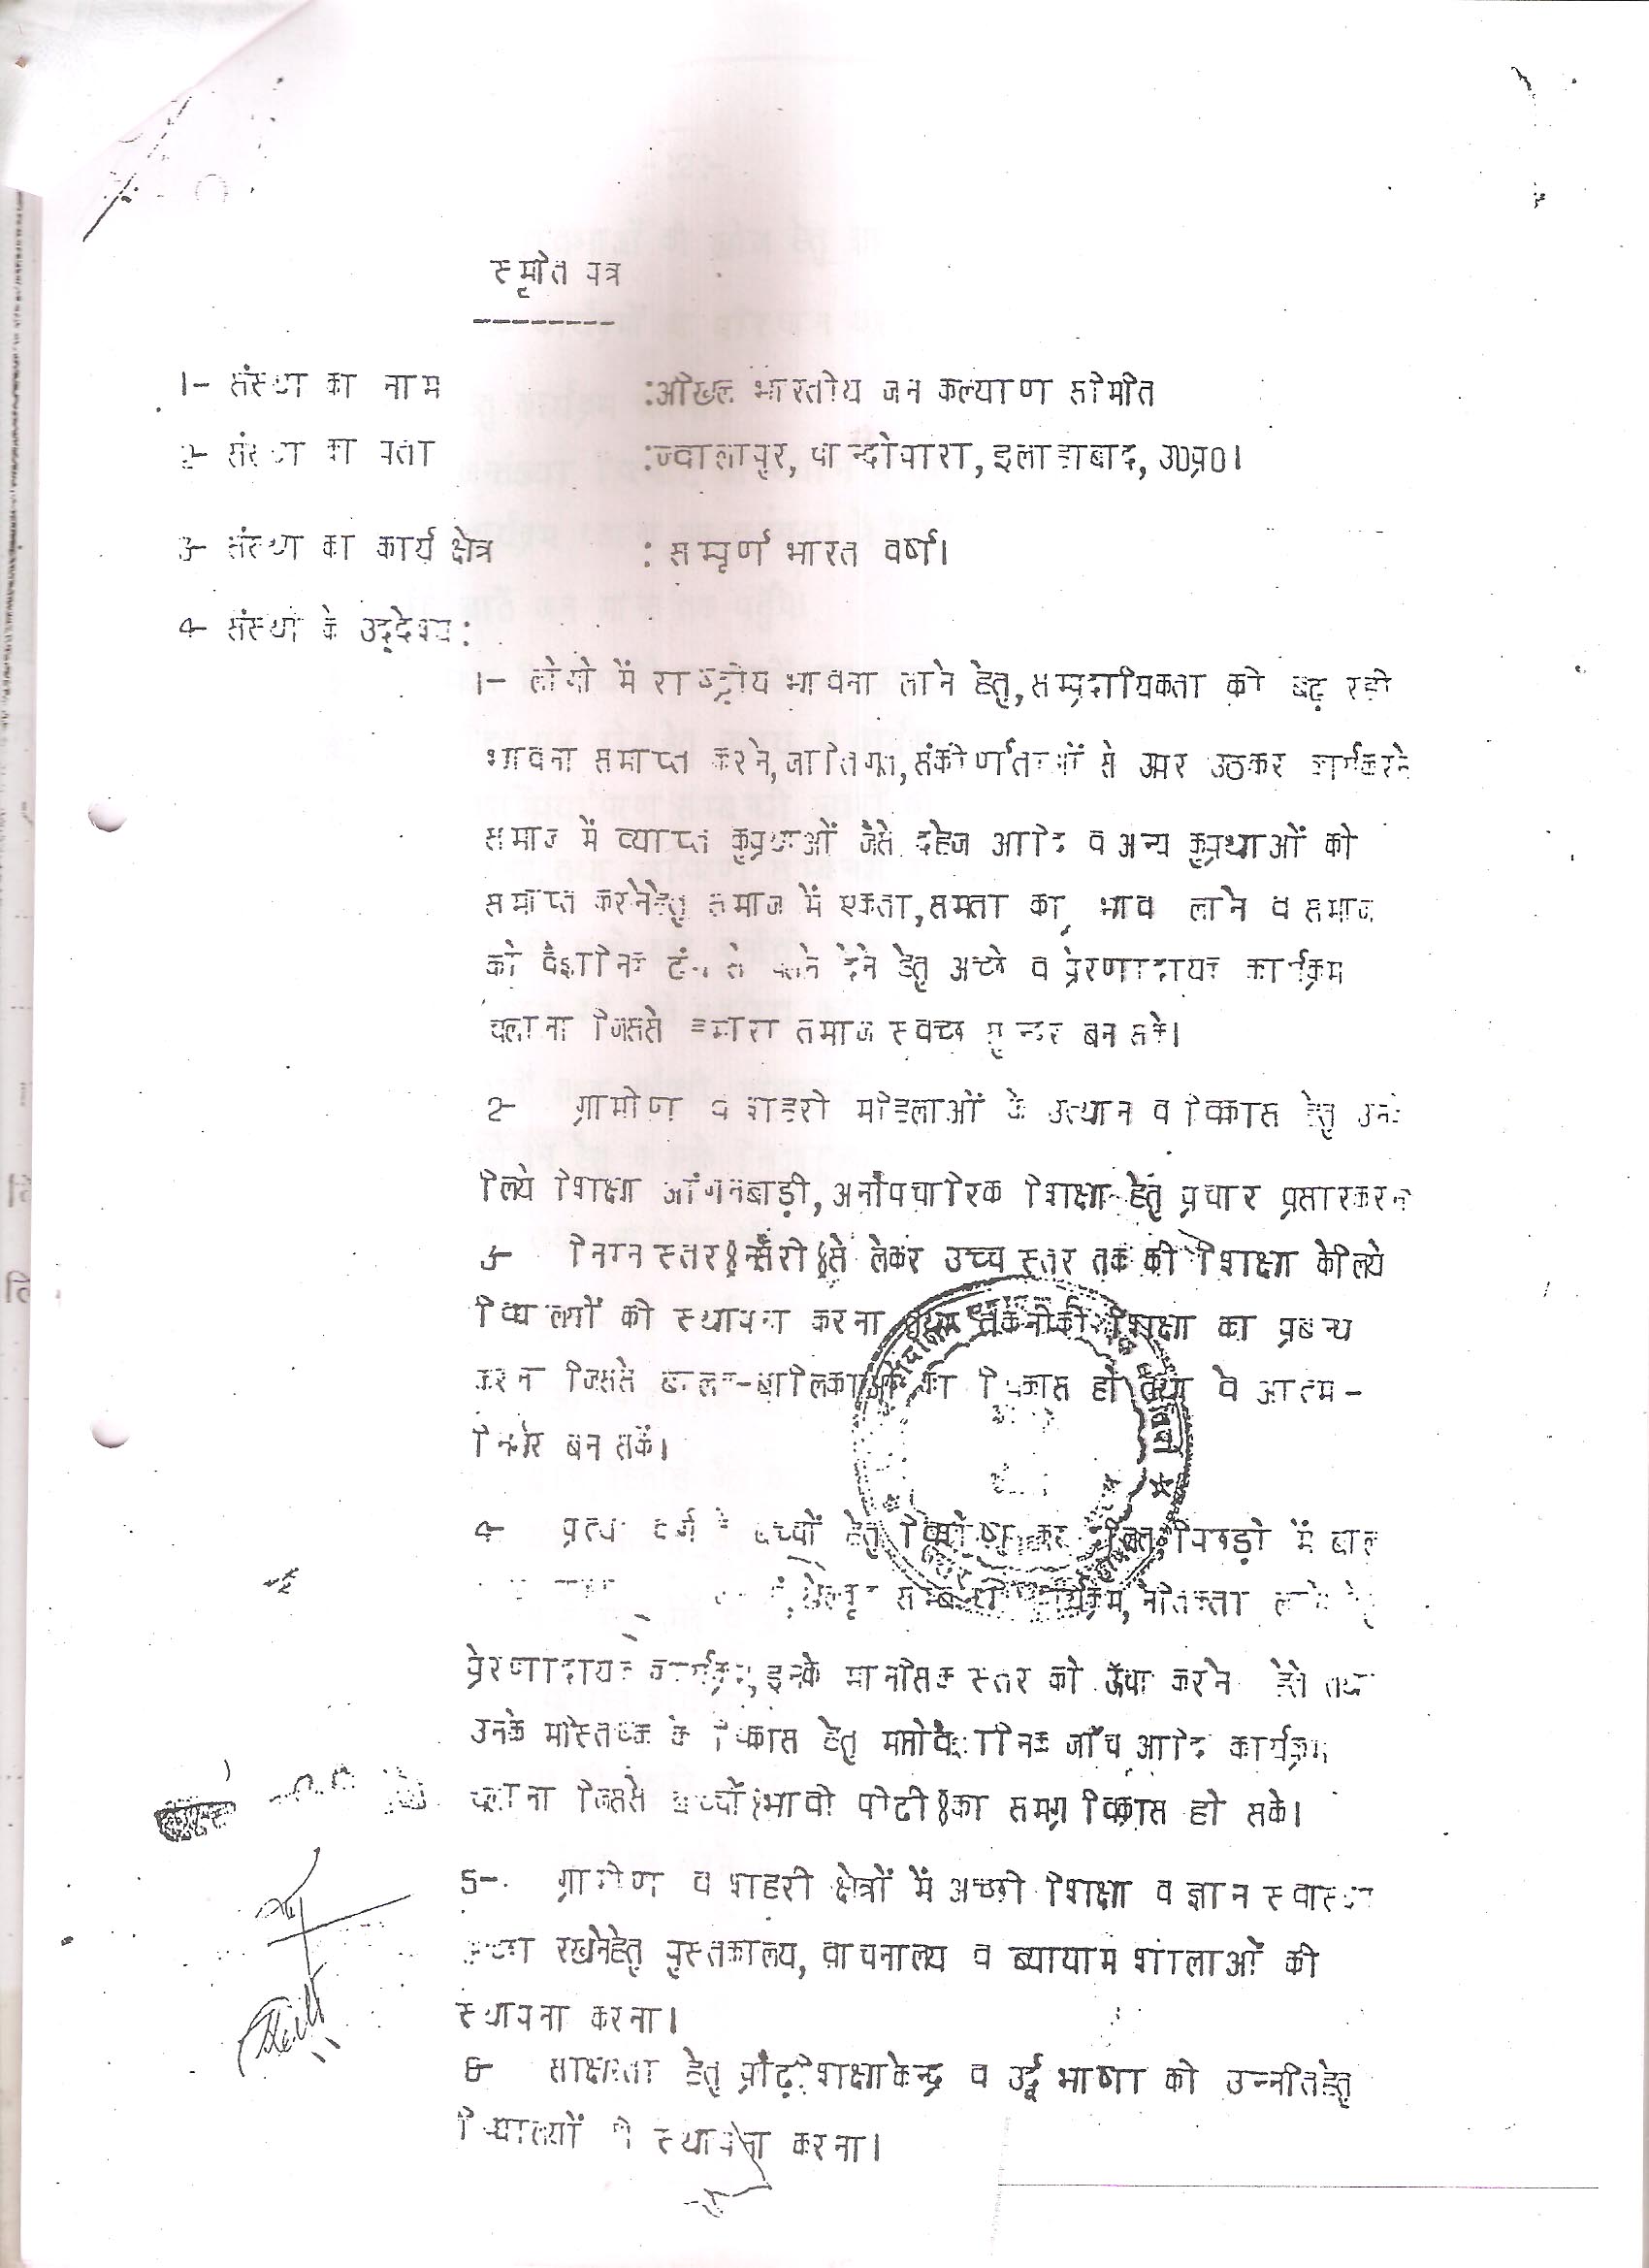 स्मृति पत्र
1- संस्था का नाम :अखिल भारतीय जन कल्याण समिति
2- संस्था का पता :ज्वालापुर, पान्दोपारा, इलाहाबाद, उ0प्र0।
3- संस्था का कार्य क्षेत्र : सम्पूर्ण भारत वर्ष।
4- संस्था के उद्देश्य:
1- लोगों में राष्ट्रीय भावना लाने हेतु, सम्प्रदायिकता की बढ़ रही
भावना समाप्त करने, जातिगत, संकीर्णताओं से ऊपर उठकर कार्यकरने
समाज में व्याप्त कुप्रथाओं जैसे दहेज आदि व अन्य कुप्रथाओं को
समाप्त करनेहेतु समाज में एकता, समता का भाव लाने व समाज
को वैज्ञानिक ढंग से देने हेतु अच्छे व प्रेरणादायक कार्यक्रम
चलाना जिससे हमारा समाज स्वच्छ सुन्दर बन सके।
2- ग्रामीण व शहरी महिलाओं के उत्थान व विकास हेतु उनके
लिये शिक्षा आंगनबाड़ी, अनौपचारिक शिक्षा हेतु प्रचार प्रसारकरना
3- निम्न स्तर नर्सरी से लेकर उच्च स्तर तक की शिक्षा केलिये
विद्यालयों की स्थापना करना तथा तकनीकी शिक्षा का प्रबन्ध
करना जिससे बालक-बालिकाओं का विकास हो तथा वे आत्म-
निर्भर बन सकें।
4- प्रत्येक वर्ग के बच्चों हेतु पिछड़ों में बाल
खेलकूद सम्बन्धी कार्यक्रम, नैतिकता लाने हेतु
प्रेरणादायक कार्यक्रम, इनके मानसिक स्तर को ऊँचा करने हेतु तथा
उनके मस्तिष्क के विकास हेतु मनोवैज्ञानिक जाँच आदि कार्यक्रम
चलाना जिससे बच्चों भावी पीढी का समग्र विकास हो सके।
5- ग्रामीण व शहरी क्षेत्रों में अच्छी शिक्षा व ज्ञान स्वास्थ्य
अच्छा रखनेहेतु पुस्तकालय, वाचनालय व व्यायाम शालाओं की
स्थापना करना।
6- साक्षरता हेतु प्रौढ़ शिक्षाकेन्द्र व उर्दू भाषा की उन्नतिहेतु
विद्यालयों की स्थापना करना।